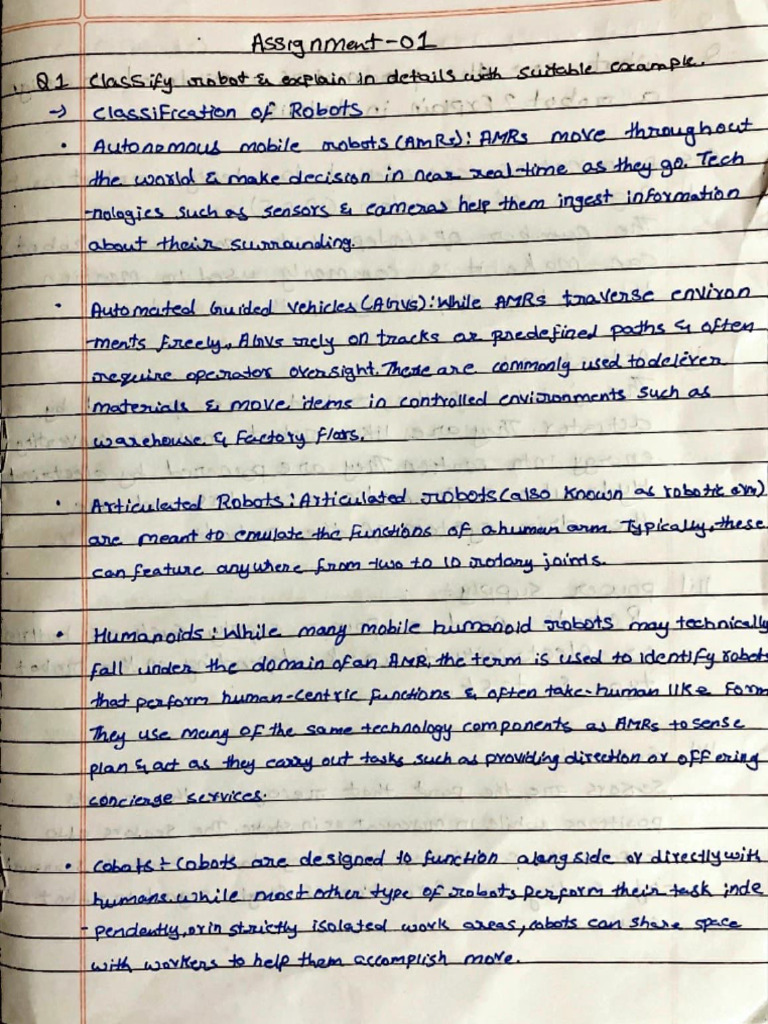 Assignment-01
Q1 Classify robot & explain in details with suitable example.
→ Classification of Robots
• Autonomous mobile robots (AMRs): AMRs move throughout
the world & make decision in near real-time as they go. Tech
-nologies such as sensors & cameras help them ingest information
about their surrounding.
• Automated Guided vehicles (AGVs): While AMRs traverse environ
-ments freely, AGVs rely on tracks or predefined paths & often
require operator oversight. These are commonly used to deliver
materials & move items in controlled environments such as
warehouse & factory floors.
• Articulated Robots: Articulated robots (also known as robotic arm)
are meant to emulate the functions of a human arm. Typically, these
can feature anywhere from two to 10 rotary joints.
• Humanoids: While many mobile humanoid robots may technically
fall under the domain of an AMR, the term is used to identify robots
that perform human-centric functions & often take-human like form
They use many of the same technology components as AMRs to sense
plan & act as they carry out tasks such as providing direction or offering
concierge services.
• Cobots:- Cobots are designed to function alongside or directly with
humans. while most other type of robots perform their task inde
-pendently, or in strictly isolated work areas, cobots can share space
with workers to help them accomplish more.